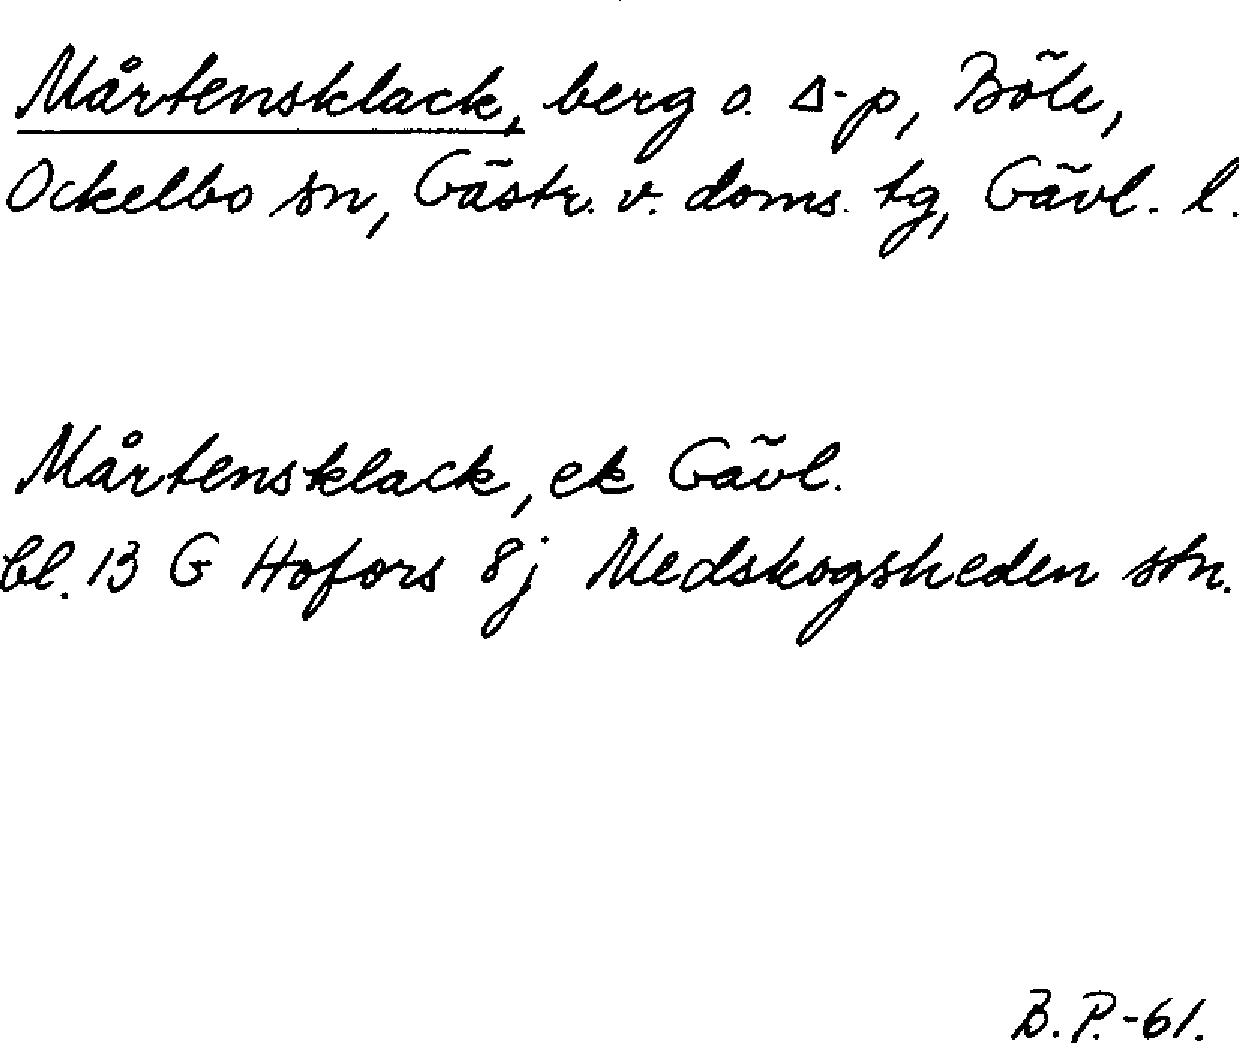 Mårtensklack, berg o. Δ-p, Böle,
Ockelbo sn, Gästr. v. doms. tg, Gävl. l.
Mårtensklack, ek Gävl.
bl. 13 G Hofors 8j Medskogsheden stn.
B.P.-61.